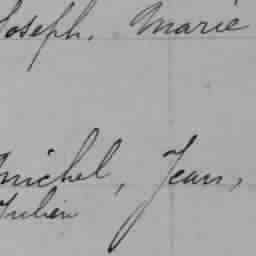 Joseph. Marie
Michel, Jean,
Julien